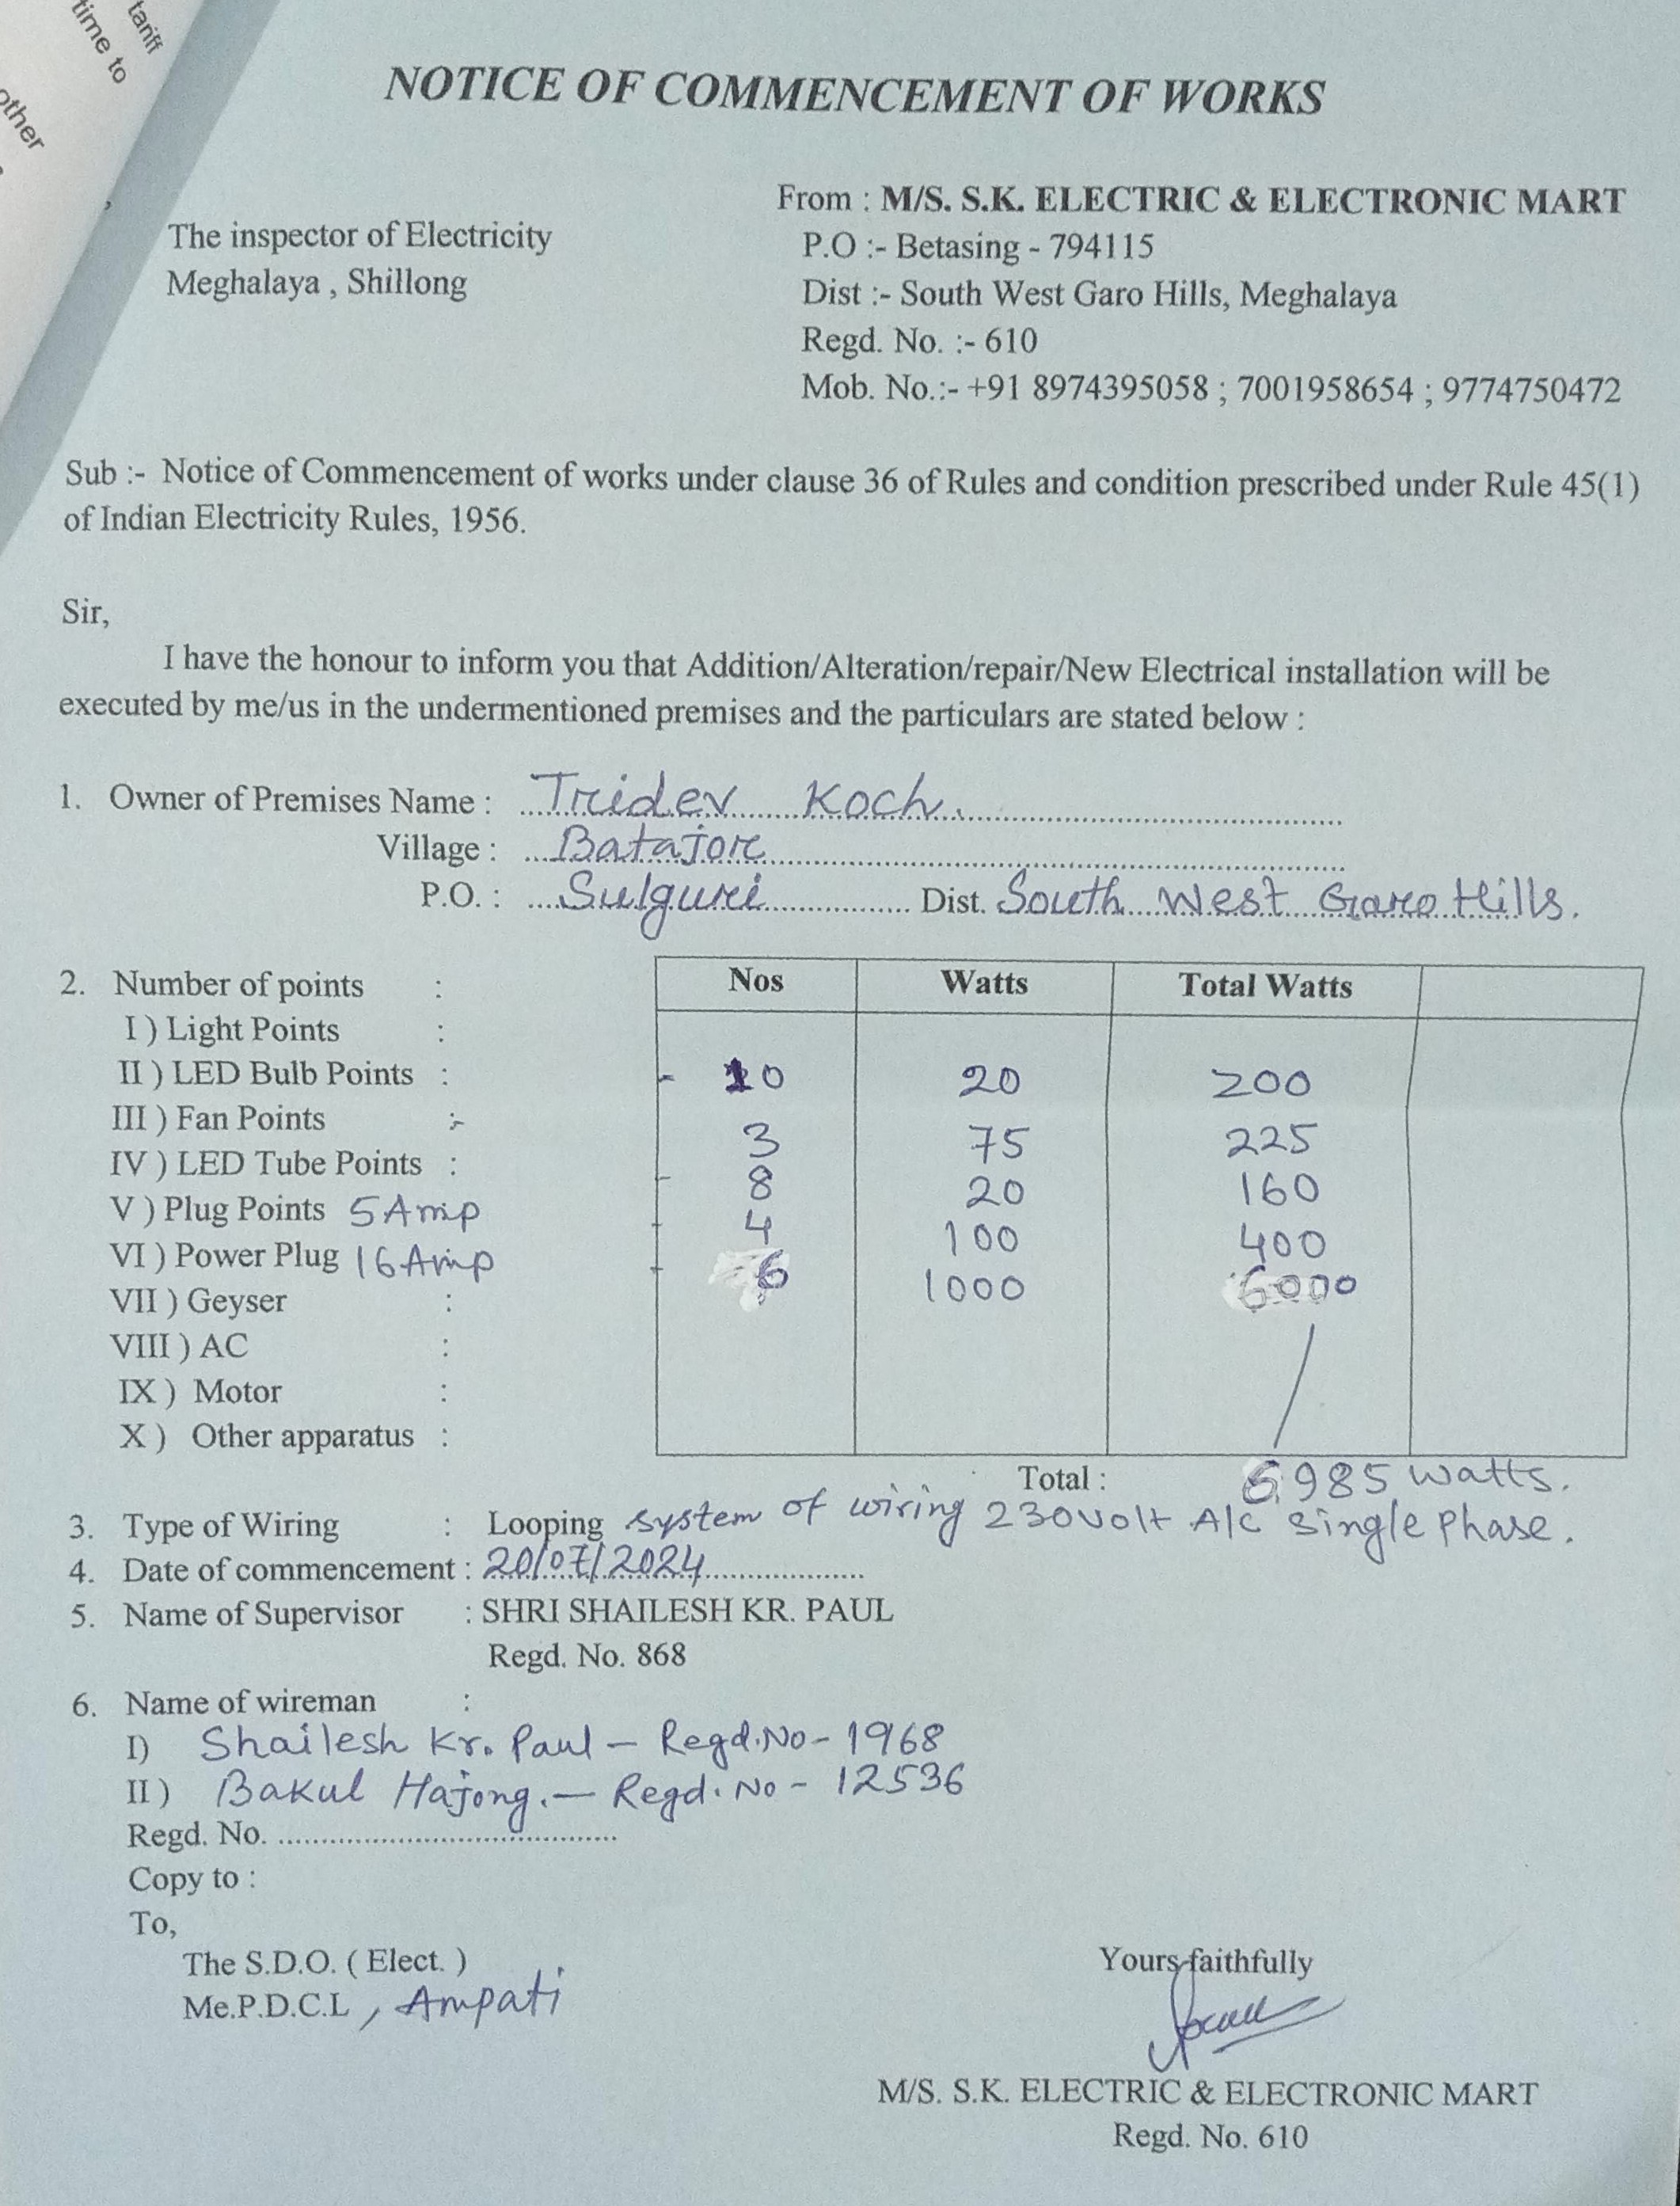 tariff
time to
other
NOTICE OF COMMENCEMENT OF WORKS
The inspector of Electricity
Meghalaya , Shillong
From : M/S. S.K. ELECTRIC & ELECTRONIC MART
P.O :- Betasing - 794115
Dist :- South West Garo Hills, Meghalaya
Regd. No. :- 610
Mob. No.:- +91 8974395058 ; 7001958654 ; 9774750472
Sub :- Notice of Commencement of works under clause 36 of Rules and condition prescribed under Rule 45(1)
of Indian Electricity Rules, 1956.
Sir,
I have the honour to inform you that Addition/Alteration/repair/New Electrical installation will be
executed by me/us in the undermentioned premises and the particulars are stated below :
1. Owner of Premises Name : Tridev Koch.
Village : Batajore
P.O. : Sulguri Dist. South West Garo Hills.
2. Number of points : Nos Watts Total Watts
I ) Light Points :
II ) LED Bulb Points : - 10 20 200
III ) Fan Points :- 3 75 225
IV ) LED Tube Points : - 8 20 160
V ) Plug Points 5 Amp - 4 100 400
VI ) Power Plug 16 Amp - 6 1000 6000
VII ) Geyser :
VIII ) AC :
IX ) Motor :
X ) Other apparatus :
Total : 6985 watts.
3. Type of Wiring : Looping system of wiring 230volt A/C single phase.
4. Date of commencement : 20/07/2024
5. Name of Supervisor : SHRI SHAILESH KR. PAUL
Regd. No. 868
6. Name of wireman :
I) Shailesh Kr. Paul - Regd.No- 1968
II ) Bakul Hajong. - Regd. No - 12536
Regd. No. ....................................
Copy to :
To,
The S.D.O. ( Elect. )
Me.P.D.C.L , Ampati
Yours faithfully
M/S. S.K. ELECTRIC & ELECTRONIC MART
Regd. No. 610